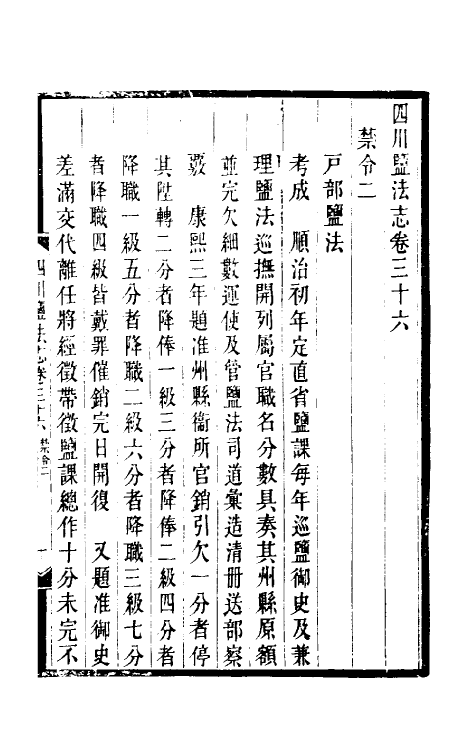 四川鹽法志卷三十六
禁令二
戸部鹽法
考成　順治初年定直省鹽課每年巡鹽御史及兼
理鹽法巡撫開列屬官職名分數具奏其州縣原額
並完欠細數運使及管鹽法司道彙造清冊送部察
覈　康熙三年題准州縣衞所官銷引欠一分者停
其陞轉二分者降俸一級三分者降俸二級四分者
降職一級五分者降職二級六分者降職三級七分
者降職四級皆戴罪催銷完日開復　又題准御史
差滿交代離任將經徵帶徵鹽課總作十分未完不
四川鹽法志卷三十六　禁令二　一